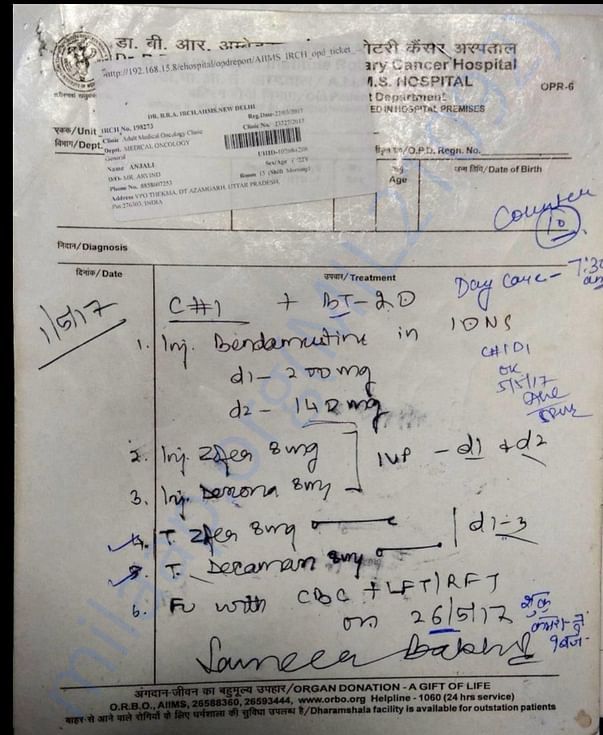 डा. बी. आर.
कैंसर अस्पताल
ary Cancer Hospital
M.S. HOSPITAL
t Department
OPR-6
ED IN HOSPITAL PREMISES
http://192.168.15.8/ehospital/opdreport/AIIMS_IRCH_opd_ticket_
DR. B.R.A. IRCH,AIIMS,NEW DELHI
एकक/Unit
विभाग/Dept.
IRCH No. 198273
Clinic Adult Medical Oncology Clinic
Deptt. MEDICAL ONCOLOGY
General
Name ANJALI
D/O- MR. ARVIND
Phone No. 8858607253
Address VPO THEKMA, DT AZAMGARH, UTTAR PRADESH,
Pin:276303, INDIA
Sex/Age
Room
O.P.D. Regn. No.
Age
जन्म तिथि/Date of Birth
Counter
10
निदान/Diagnosis
दिनांक/Date
उपचार/Treatment
Day care - 7:30 am
1/5/17
C#1 + BT-2.0
1. Inj. Bendamustine in NS
d1 - 200 mg
d2 - 140 mg
C#1D1
OK
5/5/17
2. Inj. Zofer 8mg
IVP - d1 + d2
3. Inj. 8mg
4. T. Zofer 8mg
d1-3
5. T. 8mg
6. FU with CBC + LFT/RFT
on 26/5/17
अंगदान-जीवन का बहुमूल्य उपहार/ORGAN DONATION - A GIFT OF LIFE
O.R.B.O., AIIMS, 26588360, 26593444, www.orbo.org Helpline - 1060 (24 hrs service)
बाहर से आने वाले रोगियों के लिए धर्मशाला की सुविधा उपलब्ध है/Dharamshala facility is available for outstation patients